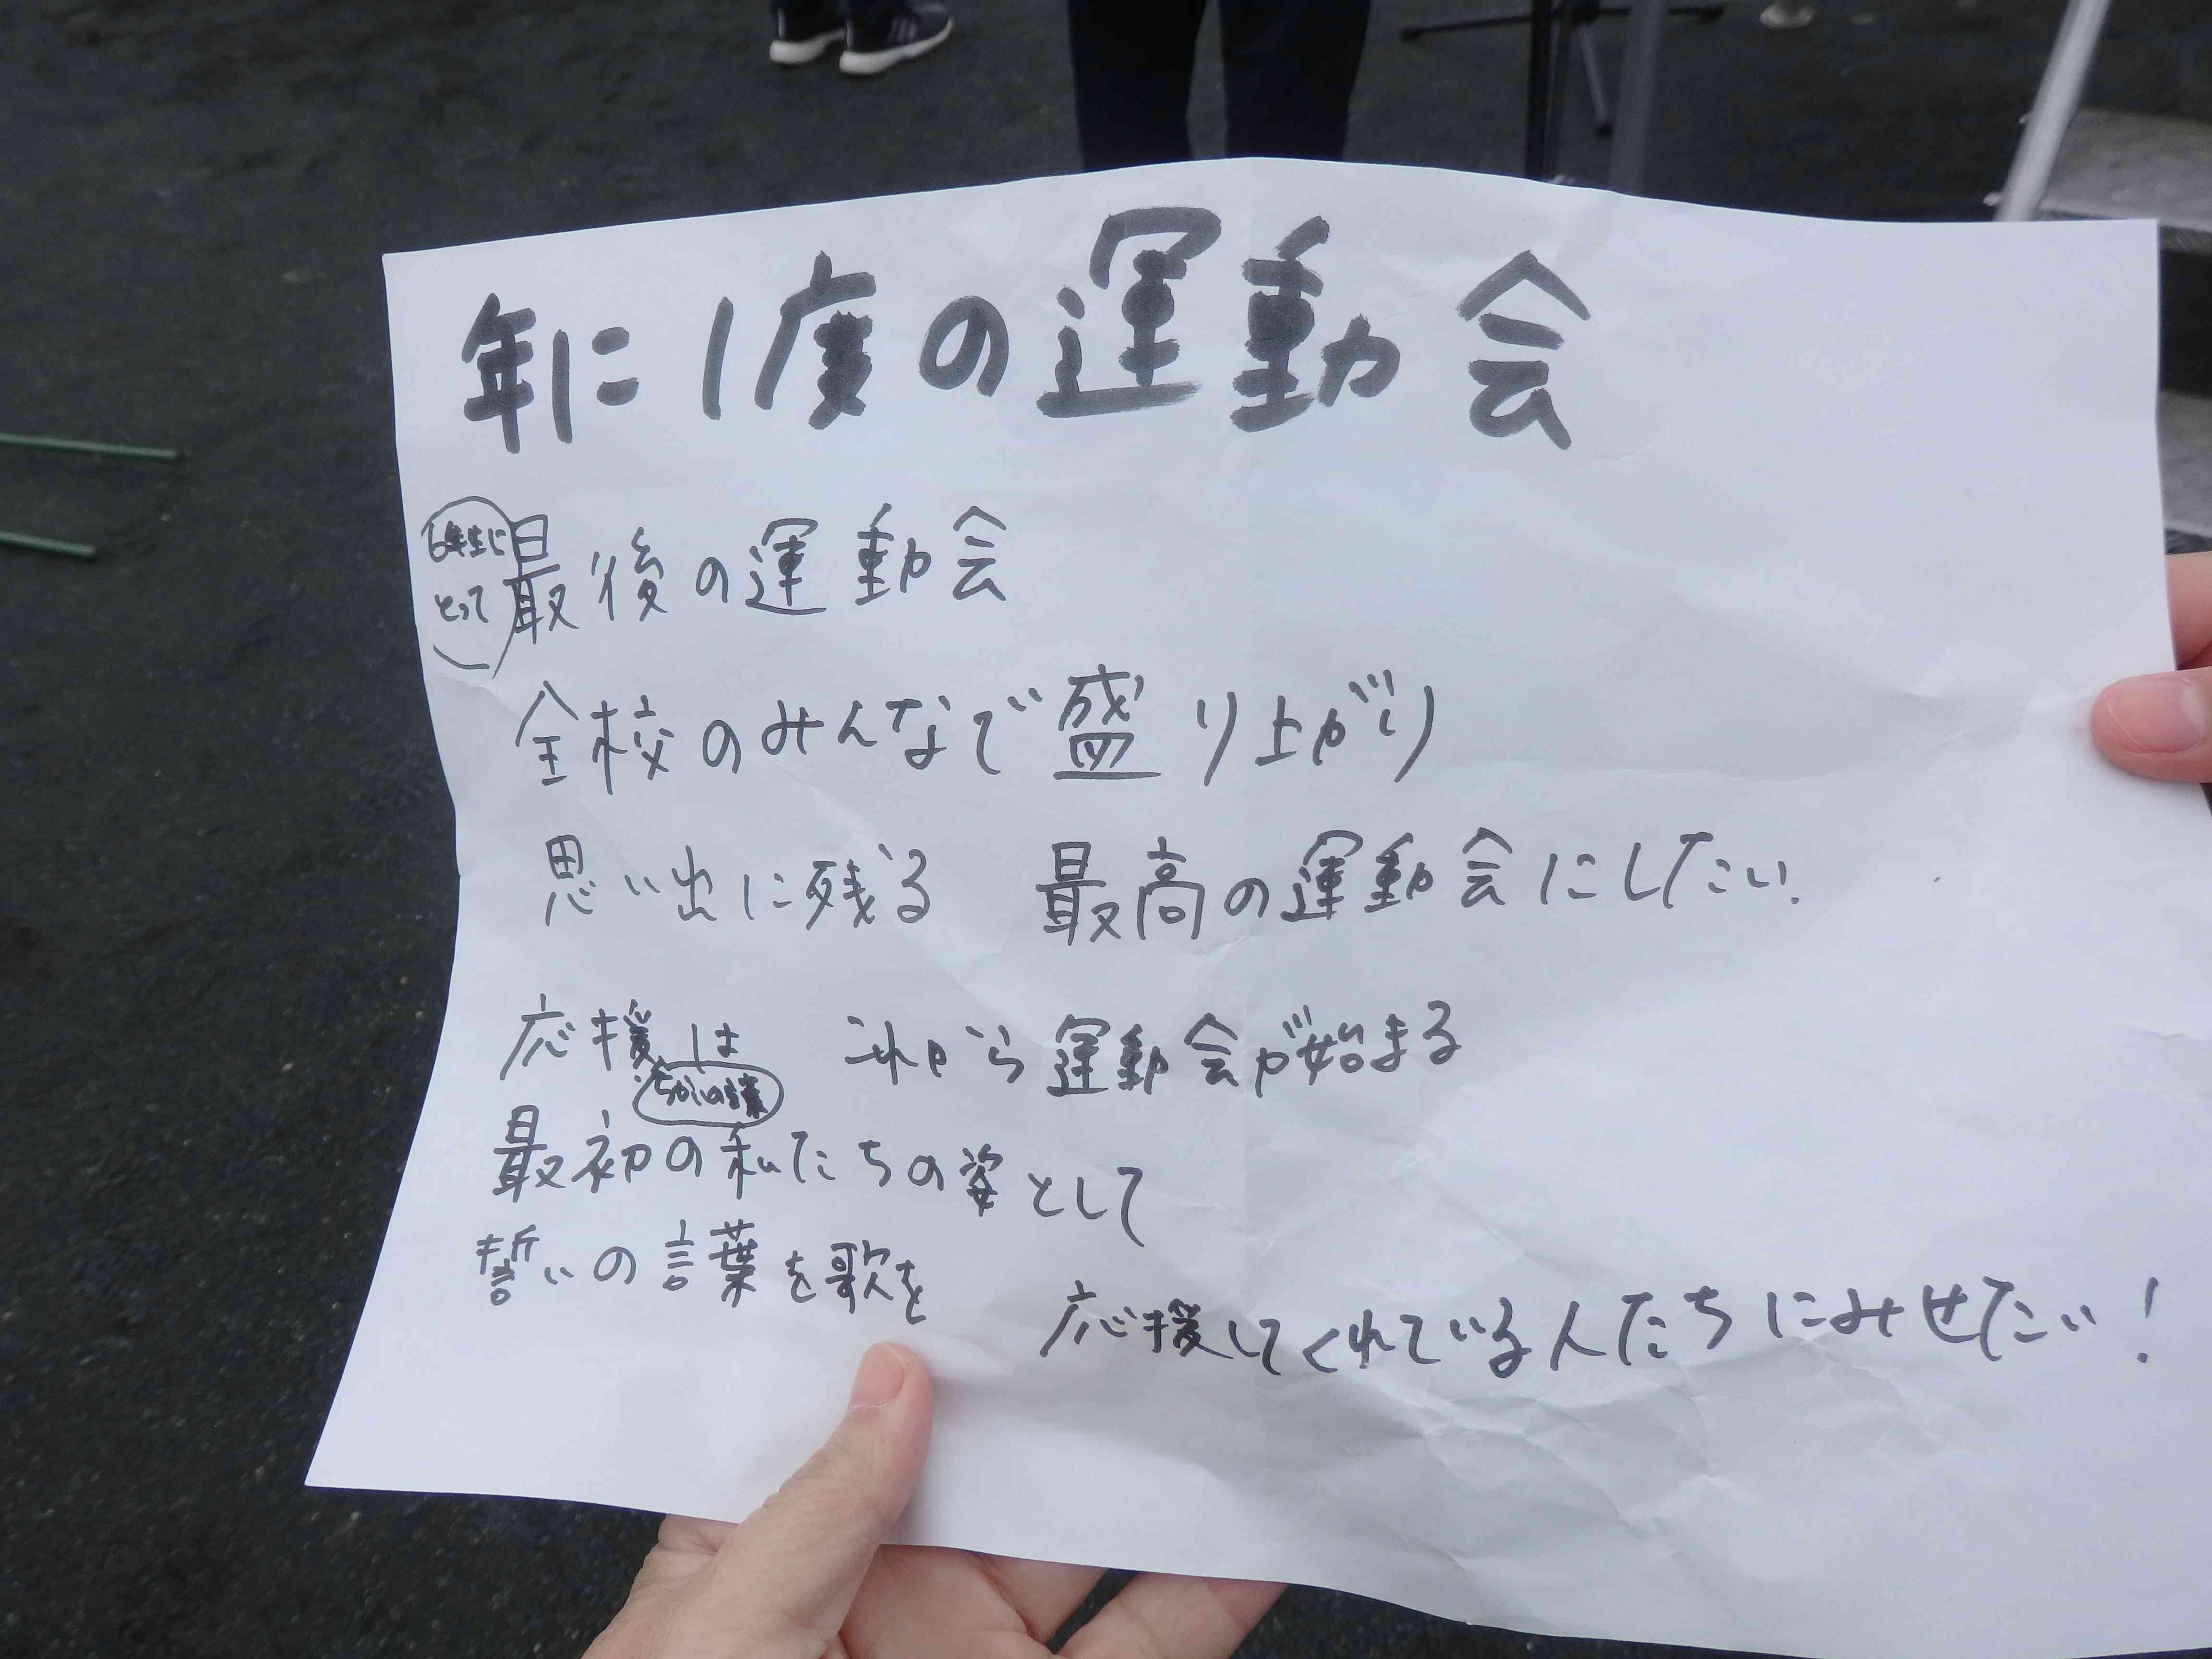 年に1度の運動会
6年生にとって
最後の運動会
全校のみんなで盛り上がり
思い出に残る 最高の運動会にしたい.
応援は これから運動会が始まる
ちかいの言葉
最初の私たちの姿として
誓いの言葉を歌を 応援してくれている人たちにみせたい!